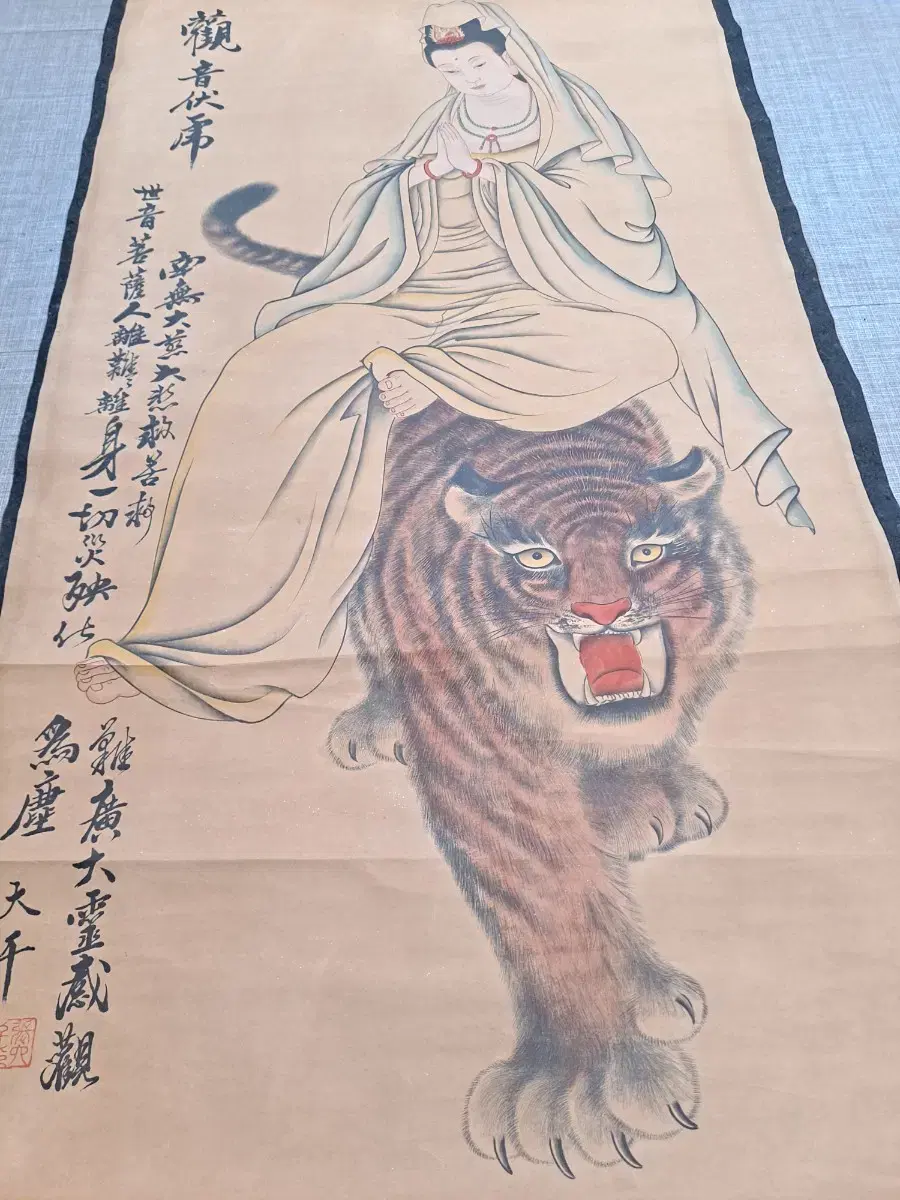 觀音伏虎
南無大慈大悲救苦救難廣大靈感觀
世音菩薩人離難々離身一切災殃化為塵
大千